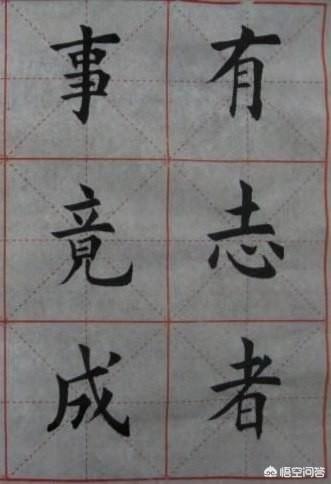 有志者
事竟成
悟空问答